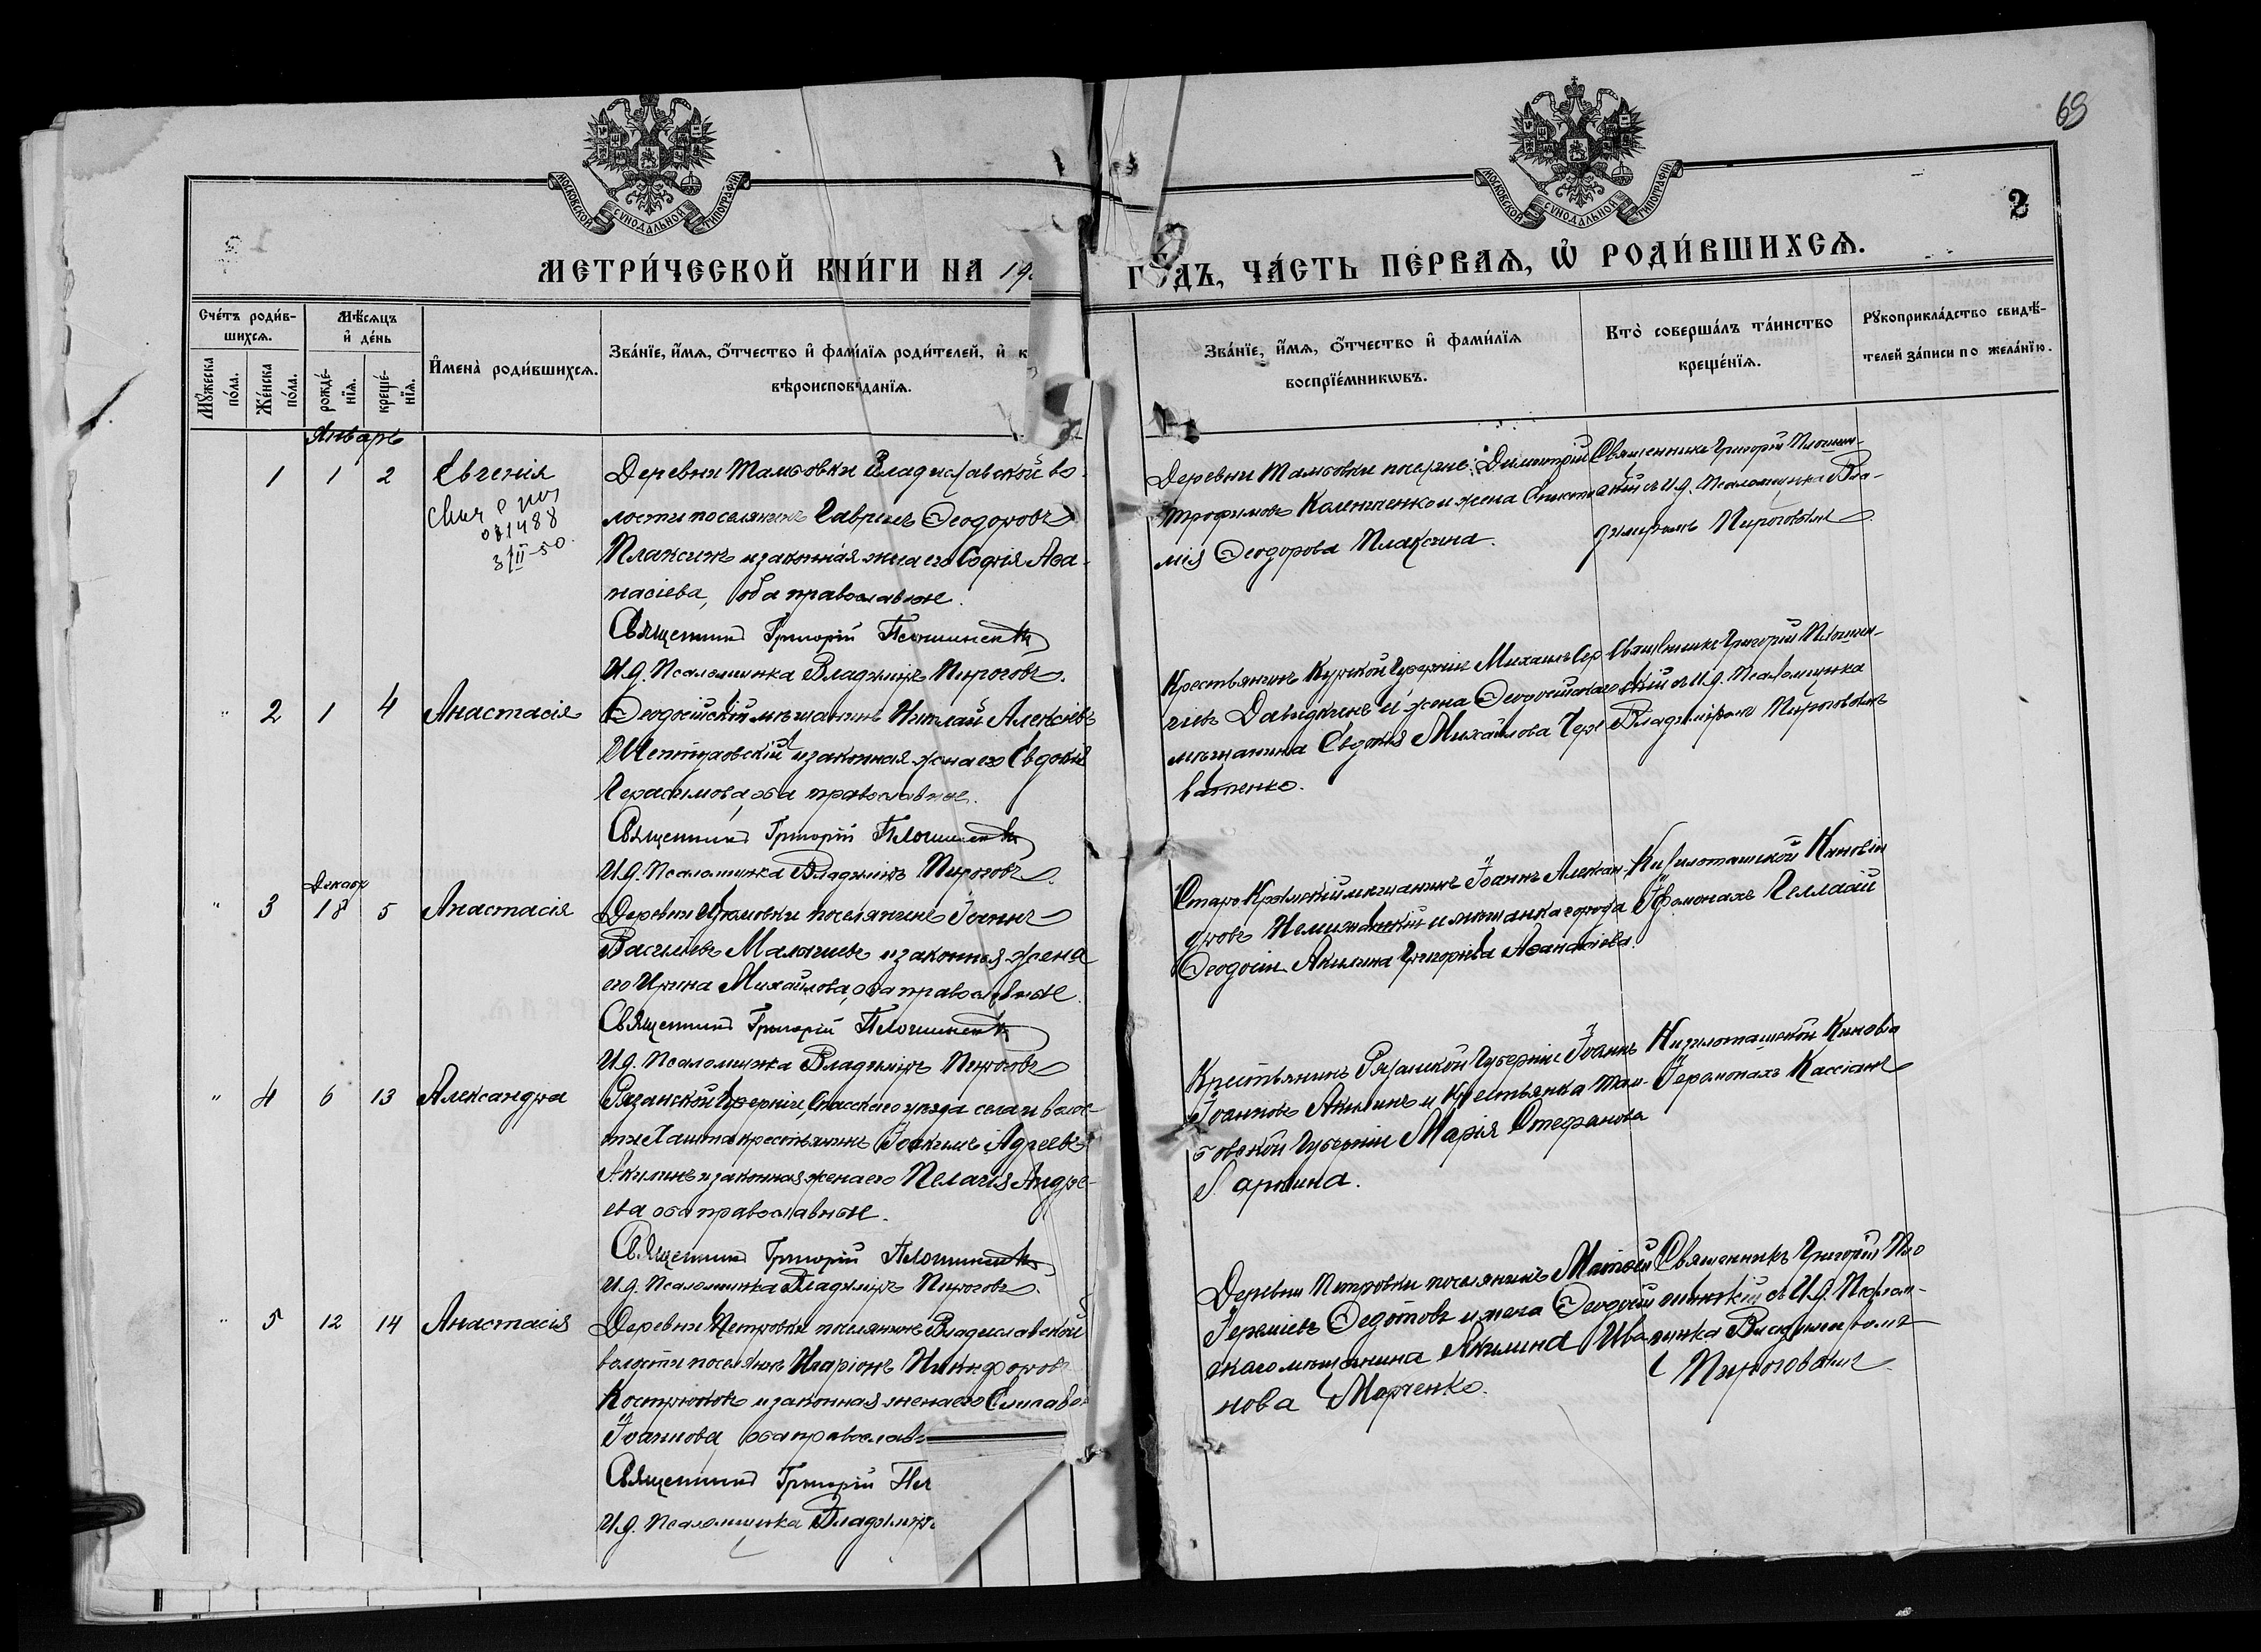 69
2
МОСКОВСКОЙ СѴНОДАЛЬНОЙ ТИПОГРАФІИ
МОСКОВСКОЙ СѴНОДАЛЬНОЙ ТИПОГРАФІИ
МЕТРИ́ЧЕСКОЙ КНИ́ГИ НА 19
ГО́ДЪ, ЧА́СТЬ ПЕ́РВАѦ, Ѡ҆ РОДИ́ВШИХСѦ.
Сче́тъ роди́в-
шихсѧ.
Мꙋ́жеска
по́ла.
Же́нска
по́ла.
Мѣ́сѧцъ
и҆ де́нь
рожде́-
нїѧ.
креще́-
нїѧ.
И҆мена̀ роди́вшихсѧ.
Зва́нїе, и҆́мѧ, ѻ҆́тчество и҆ фамі́лїѧ роди́телей, и҆ к
вѣроисповѣ́данїѧ.
Зва́нїе, и҆́мѧ, ѻ҆́тчество и҆ фамі́лїѧ
воспрїе́мникѡвъ.
Кто̀ соверша́лъ та́инство
креще́нїѧ.
Рꙋкоприкла́дство свидѣ́-
телей за́писи по жела́нїю.
Январь
1 1 2 Евгенія
081488
3/II-50
Деревни Тамбовки Владиславской во-
лости поселянинъ Гавріилъ Ѳеодоровъ
Плаксинъ и законная жена его Софія Аѳа-
насіева, оба православные.
Священникъ Григорій Плошинскій
И.д. Псаломщика Владиміръ Пироговъ.
Деревни Тамбовки поселяне: Димитрій
Трофимовъ Калениченко и жена
Ѳеодорова Плаксина.
Священникъ Григорій Плошин-
скій съ И.д. Псаломщика Вла-
диміромъ Пироговымъ
" 2 1 4 Анастасія
Ѳеодосійскій мѣщанинъ Николай Алексѣевъ
и законная жена его Евдокія
Герасимова, оба православные.
Священникъ Григорій Плошинскій
И.д. Псаломщика Владиміръ Пироговъ.
Крестьянинъ Курской губерніи Михаилъ Сер-
гіевъ Давыдкинъ и жена Ѳеодосійскаго
мѣщанина Евдокія Михайлова Чер-
ватенко.
Священникъ Григорій Плошин-
скій съ И.д. Псаломщика
Владиміромъ Пироговымъ
Декабр
" 3 18 5 Анастасія
Деревни поселянинъ Іоаннъ
Василіевъ и законная жена
его Ирина Михайлова, оба православные.
Священникъ Григорій Плошинскій
И.д. Псаломщика Владиміръ Пироговъ
Старо-Крымскій мѣщанинъ Іоаннъ Алексан-
дровъ и мѣщанка города
Ѳеодосіи Акилина Григоріева Аѳанасіева.
Кизилташской Киновіи
Іеромонахъ Геласій
" 4 6 13 Александра
Рязанской губерніи Спасскаго уѣзда села и волос-
ти крестьянинъ Іоакимъ
Акининъ и законная жена его Пелагія Андре-
ева оба православные.
Священникъ Григорій Плошинскій
И.д. Псаломщика Владиміръ Пироговъ.
Крестьянинъ Рязанской губерніи Іоаннъ
Іоанновъ Акининъ и крестьянка Там-
бовской губерніи Марія Стефанова
Кизилташской Киновіи
Іеромонахъ Кассіанъ
" 5 12 14 Анастасія
Деревни Петровки поселянинъ Владиславской
волости поселянинъ Иларіонъ Никифоровъ
Костроковъ и законная жена его Елисаве
Іоаннова оба православ
Священникъ Григорій Пл
И.д. Псаломщика Владиміръ
Деревни Петровки поселянинъ Матѳей
Іереміевъ Ѳедотовъ и жена Ѳеодосій-
скаго мѣщанина Акилина Ива-
нова Марченко.
Священникъ Григорій Пло-
шинскій съ И.д. Псалом-
щика Владиміромъ
Пироговымъ